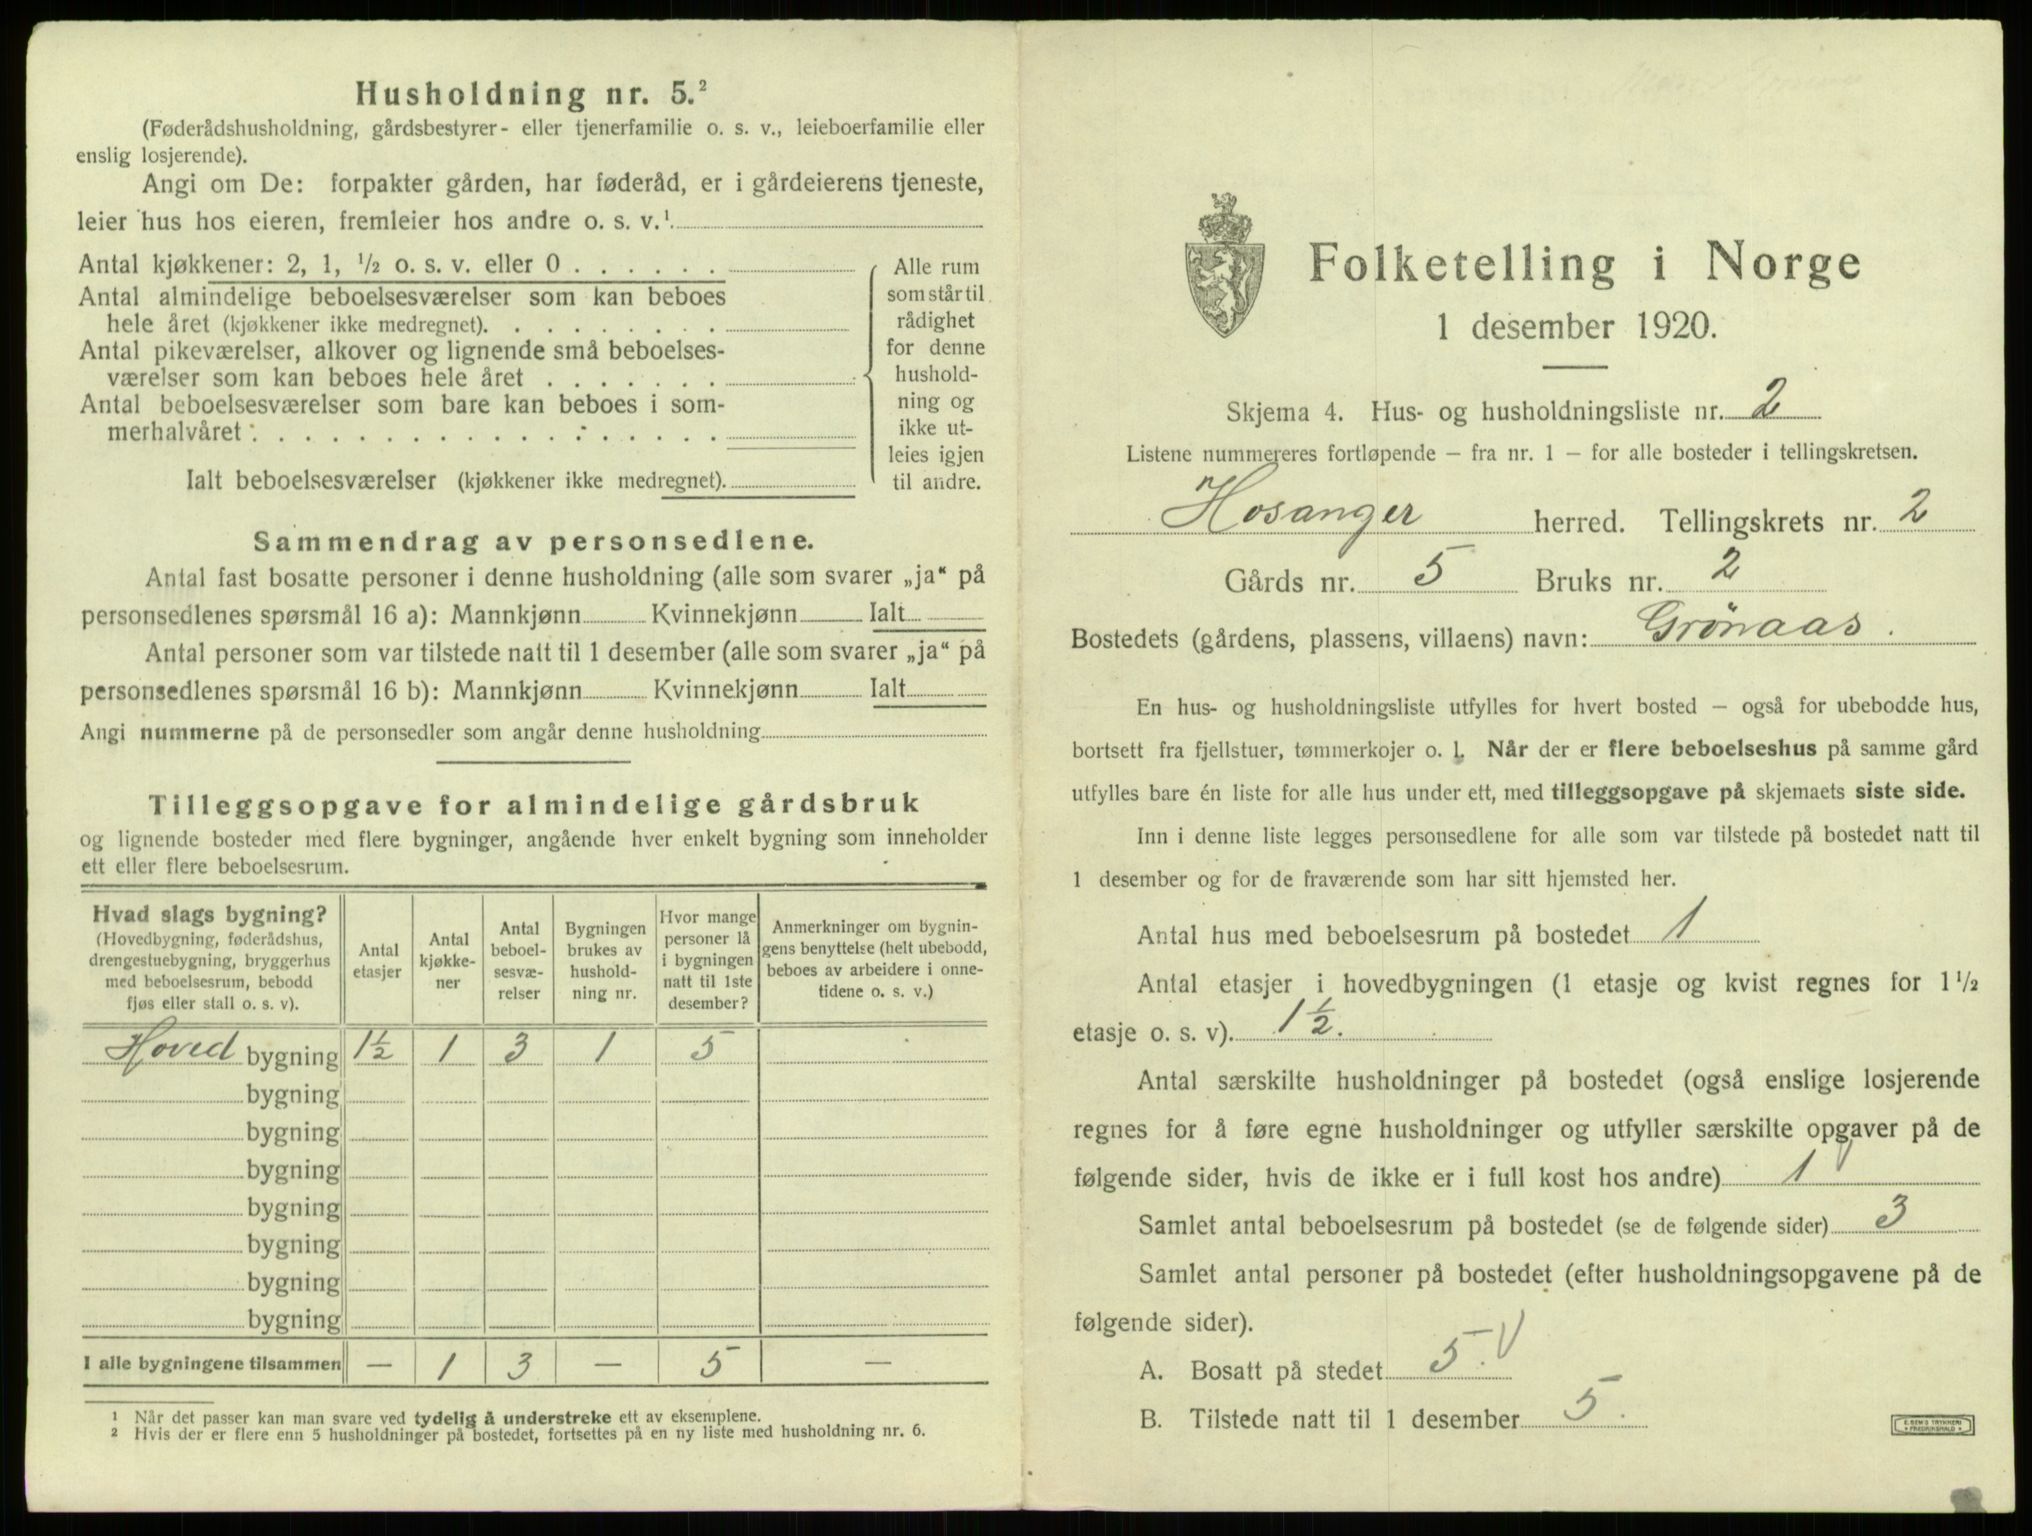 Husholdning nr. 5.²
(Føderådshusholdning, gårdsbestyrer- eller tjenerfamilie o. s. v., leieboerfamilie eller
enslig losjerende).
Angi om De: forpakter gården, har føderåd, er i gårdeierens tjeneste,
leier hus hos eieren, fremleier hos andre o. s. v.¹
Antal kjøkkener: 2, 1, ½ o. s. v. eller 0
Antal almindelige beboelsesværelser som kan beboes
hele året (kjøkkener ikke medregnet).
Antal pikeværelser, alkover og lignende små beboelses-
værelser som kan beboes hele året
Antal beboelsesværelser som bare kan beboes i som-
merhalvåret
Ialt beboelsesværelser (kjøkkener ikke medregnet).
Alle rum
som står til
rådighet
for denne
hushold-
ning og
ikke ut-
leies igjen
til andre.
Sammendrag av personsedlene.
Antal fast bosatte personer i denne husholdning (alle som svarer „ja“ på
personsedlenes spørsmål 16 a): Mannkjønn Kvinnekjønn Ialt
Antal personer som var tilstede natt til 1 desember (alle som svarer „ja“ på
personsedlenes spørsmål 16 b): Mannkjønn Kvinnekjønn Ialt
Angi nummerne på de personsedler som angår denne husholdning
Tilleggsopgave for almindelige gårdsbruk
og lignende bosteder med flere bygninger, angående hver enkelt bygning som inneholder
ett eller flere beboelsesrum.
Hvad slags bygning?
(Hovedbygning, føderådshus,
drengestuebygning, bryggerhus
med beboelsesrum, bebodd
fjøs eller stall o. s. v).
Antal
etasjer
Antal
kjøkke-
ner
Antal
beboel-
sesvæ-
relser
Bygningen
brukes av
hushold-
ning nr.
Hvor mange
personer lå
i bygningen
natt til 1ste
desember?
Anmerkninger om bygnin-
gens benyttelse (helt ubebodd,
beboes av arbeidere i onne-
tidene o. s. v.)
Hoved bygning 1½ 1 3 1 5
bygning
bygning
bygning
bygning
bygning
bygning
bygning
I alle bygningene tilsammen — 1 3 — 5 —
¹ Når det passer kan man svare ved tydelig å understreke ett av eksemplene.
² Hvis der er flere enn 5 husholdninger på bostedet, fortsettes på en ny liste med husholdning nr. 6.
Folketelling i Norge
1 desember 1920.
Skjema 4. Hus- og husholdningsliste nr. 2
Listene nummereres fortløpende – fra nr. 1 – for alle bosteder i tellingskretsen.
Hosanger herred. Tellingskrets nr. 2
Gårds nr. 5 Bruks nr. 2
Bostedets (gårdens, plassens, villaens) navn: Grönaas.
En hus- og husholdningsliste utfylles for hvert bosted – også for ubebodde hus,
bortsett fra fjellstuer, tømmerkojer o. l. Når der er flere beboelseshus på samme gård
utfylles bare én liste for alle hus under ett, med tilleggsopgave på skjemaets siste side.
Inn i denne liste legges personsedlene for alle som var tilstede på bostedet natt til
1 desember og for de fraværende som har sitt hjemsted her.
Antal hus med beboelsesrum på bostedet 1
Antal etasjer i hovedbygningen (1 etasje og kvist regnes for 1½
etasje o. s. v). 1½.
Antal særskilte husholdninger på bostedet (også enslige losjerende
regnes for å føre egne husholdninger og utfyller særskilte opgaver på de
følgende sider, hvis de ikke er i full kost hos andre) 1
Samlet antal beboelsesrum på bostedet (se de følgende sider) 3
Samlet antal personer på bostedet (efter husholdningsopgavene på de
følgende sider).
A. Bosatt på stedet 5.
B. Tilstede natt til 1 desember 5.
E. SEM'S TRYKKERI
FREDRIKSHALD